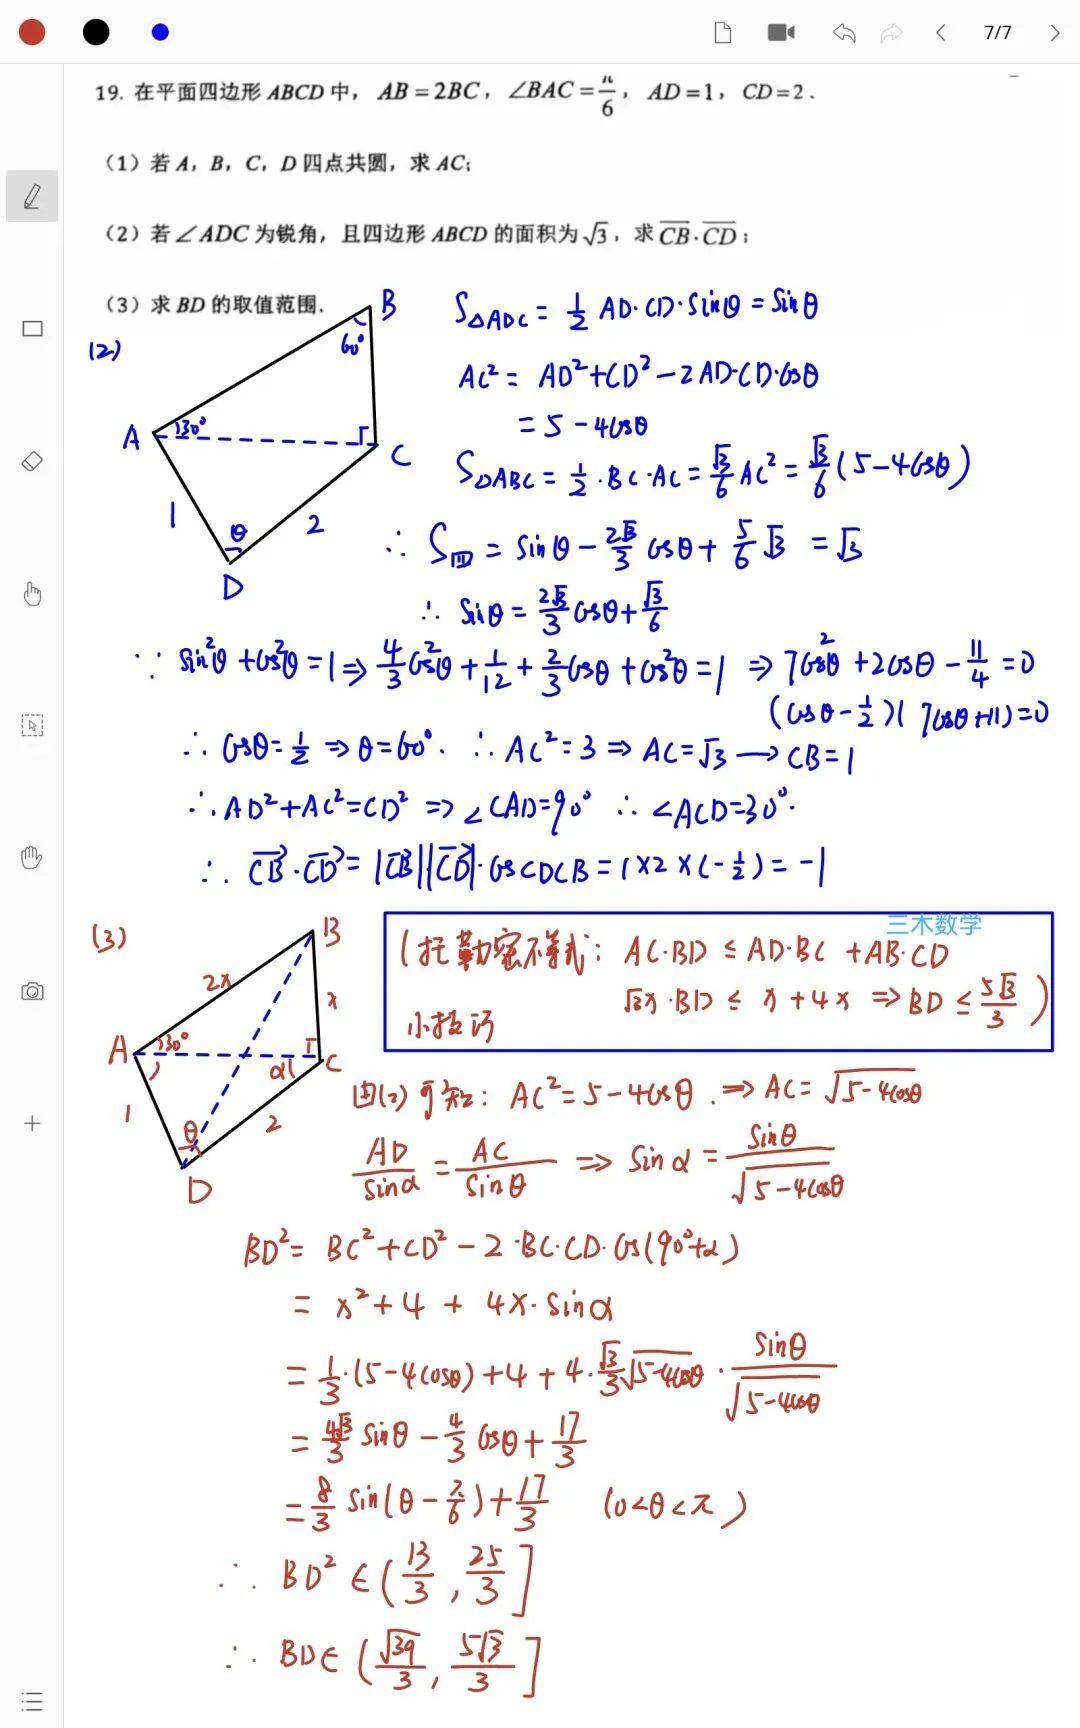 7/7
19. 在平面四边形 ABCD 中, AB=2BC, ∠BAC=π/6, AD=1, CD=2.
(1) 若 A, B, C, D 四点共圆, 求 AC;
(2) 若 ∠ADC 为锐角, 且四边形 ABCD 的面积为 √3, 求 CB·CD;
(3) 求 BD 的取值范围.
(2)
B
60°
A
30°
C
1
θ
2
D
S△ADC = 1/2 AD·CD·sinθ = sinθ
AC² = AD²+CD²-2AD·CD·cosθ
= 5-4cosθ
S△ABC = 1/2·BC·AC = √3/6 AC² = √3/6 (5-4cosθ)
∴ S四 = sinθ - 2√3/3 cosθ + 5/6 √3 = √3
∴ sinθ = 2√3/3 cosθ + √3/6
∵ sin²θ+cos²θ=1 ⇒ 4/3 cos²θ + 1/12 + 2/3 cosθ + cos²θ = 1 ⇒ 7cos²θ+2cosθ-11/4=0
(cosθ-1/2)(7cosθ+11)=0
∴ cosθ=1/2 ⇒ θ=60°. ∴ AC²=3 ⇒ AC=√3 → CB=1
∴ AD²+AC²=CD² ⇒ ∠CAD=90° ∴ ∠ACD=30°.
∴ CB·CD = |CB||CD|·cos∠DCB = 1×2×(-1/2) = -1
三木数学
(3)
B
2x
x
A
30°
α
C
1
θ
2
D
(托勒密不等式: AC·BD ≤ AD·BC + AB·CD
√3x·BD ≤ x+4x ⇒ BD ≤ 5√3/3 )
小技巧
由(2)可知: AC²=5-4cosθ. ⇒ AC=√(5-4cosθ)
AD/sinα = AC/sinθ ⇒ sinα = sinθ/√(5-4cosθ)
BD² = BC²+CD²-2·BC·CD·cos(90°+α)
= x²+4+4x·sinα
= 1/3·(5-4cosθ)+4+4·√3/3 √(5-4cosθ)·sinθ/√(5-4cosθ)
= 4√3/3 sinθ - 4/3 cosθ + 17/3
= 8/3 sin(θ-π/6)+17/3 (0<θ<π)
∴ BD² ∈ (13/3, 25/3]
∴ BD ∈ (√39/3, 5√3/3]